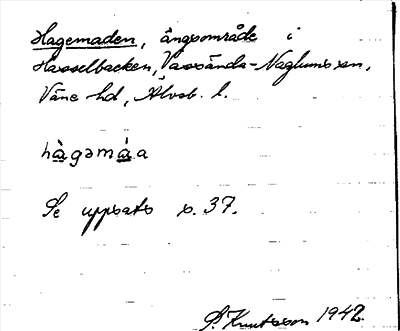 Hagemaden, ängsområde i
Hasselbacken, Vassända-Naglums sn,
Väne hd, Älvsb. l.
hàgəmáa
Se uppsats s. 37.
P. Knutsson 1942.